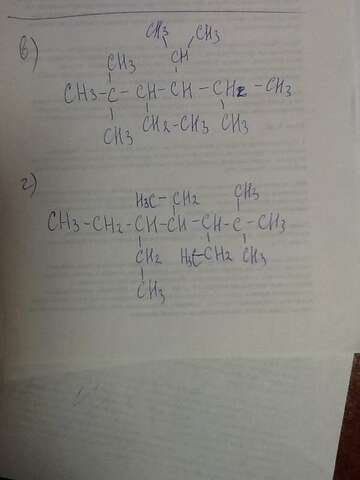 в)
CH3 CH3
CH3 CH
CH3-C-CH-CH-CH2-CH3
CH3 CH2-CH3 CH3
г)
H3C-CH2 CH3
CH3-CH2-CH-CH-CH-C-CH3
CH2 H3C-CH2 CH3
CH3